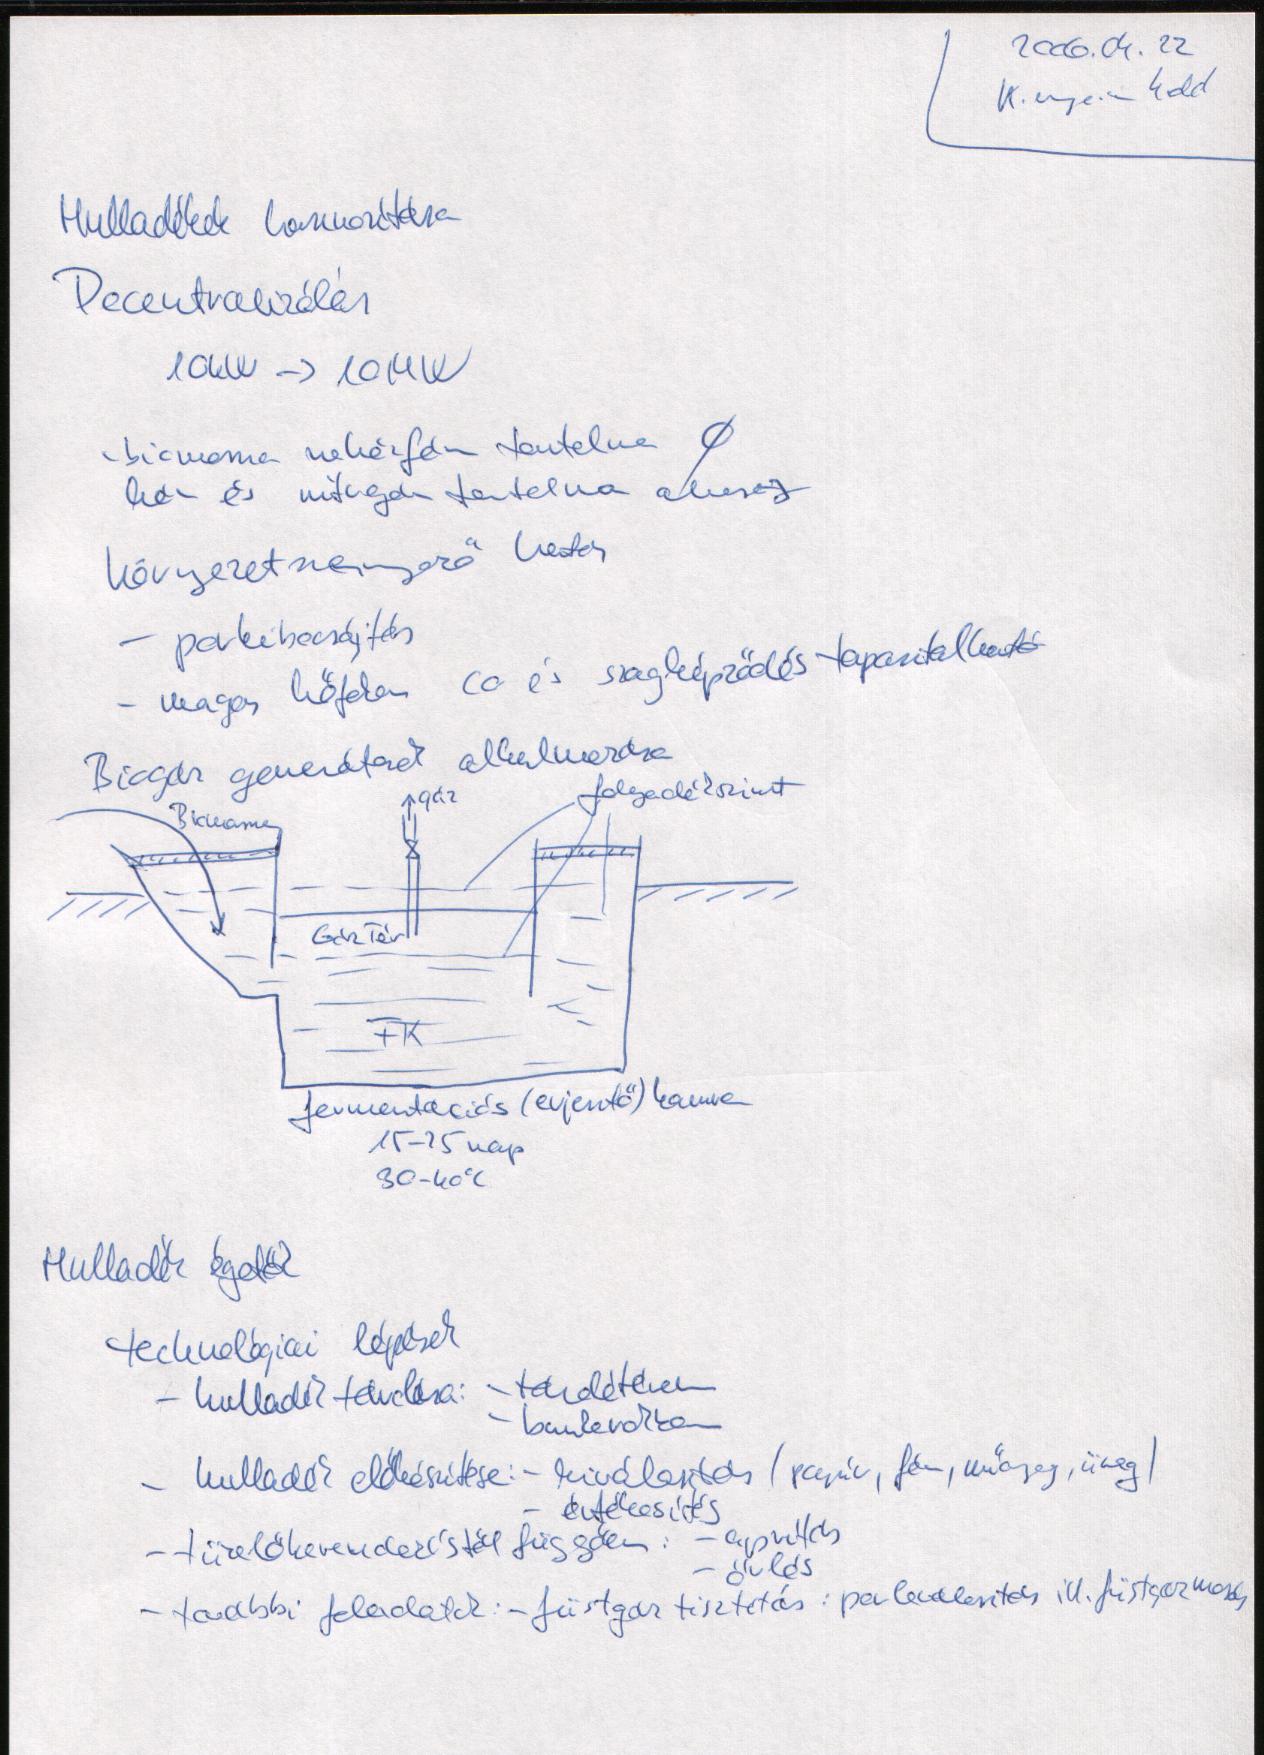 2006.04.22
Hulladékok hasznosítása
Decentralizálás
10kW -> 10MW
- biomassa nehézfém tartalma ∅
kén és nitrogén tartalma alacsony
környezetszennyező hatás
- porkibocsájtás
- magas hőfokon CO és szagképződés tapasztalható
Biogáz generátorok alkalmazása
gáz
folyadékszint
Biomassza
Gáz Tér
FK
fermentációs (erjesztő) kamra
15-25 nap
30-40°C
Hulladék égetők
technológiai lépések
- hulladék tárolása: - tárolótéren
- bunkerokban
- hulladék előkészítése: - kiválasztás (papír, fém, műanyag, üveg)
- értékesítés
- tüzelőberendezéstől függően: - aprítás
- őrlés
- további feladatok: - füstgáz tisztítás: porleválasztás ill. füstgázmosás